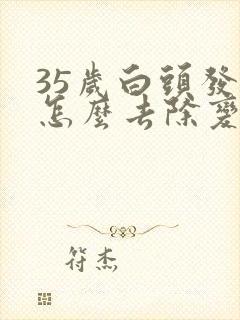 35歲白頭發
怎麼去除變
符杰